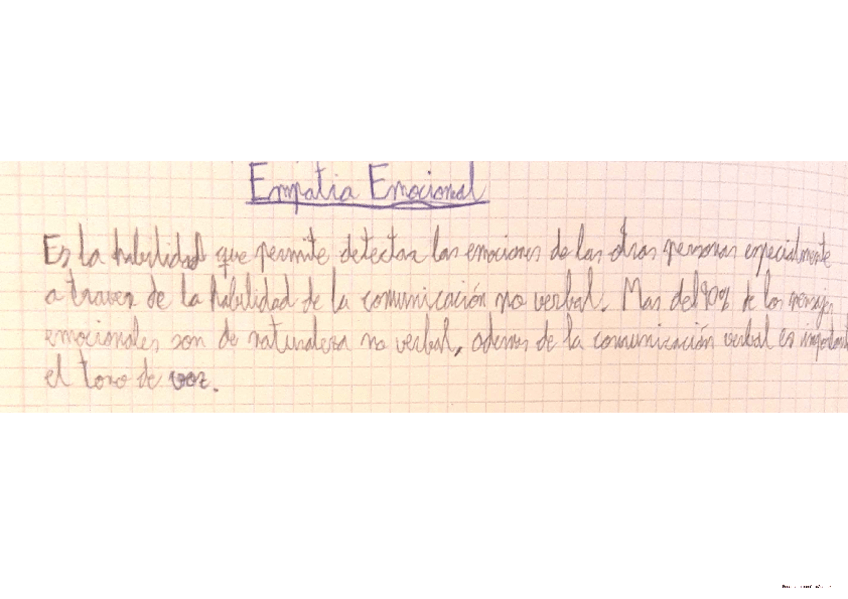 Empatia Emocional
Es la habilidad que permite detectar las emociones de las otras personas especialmente
a traves de la habilidad de la comunicación no verbal. Mas del 90% de los mensajes
emocionales son de naturaleza no verbal, ademas de la comunicación verbal es important
el tono de voz.